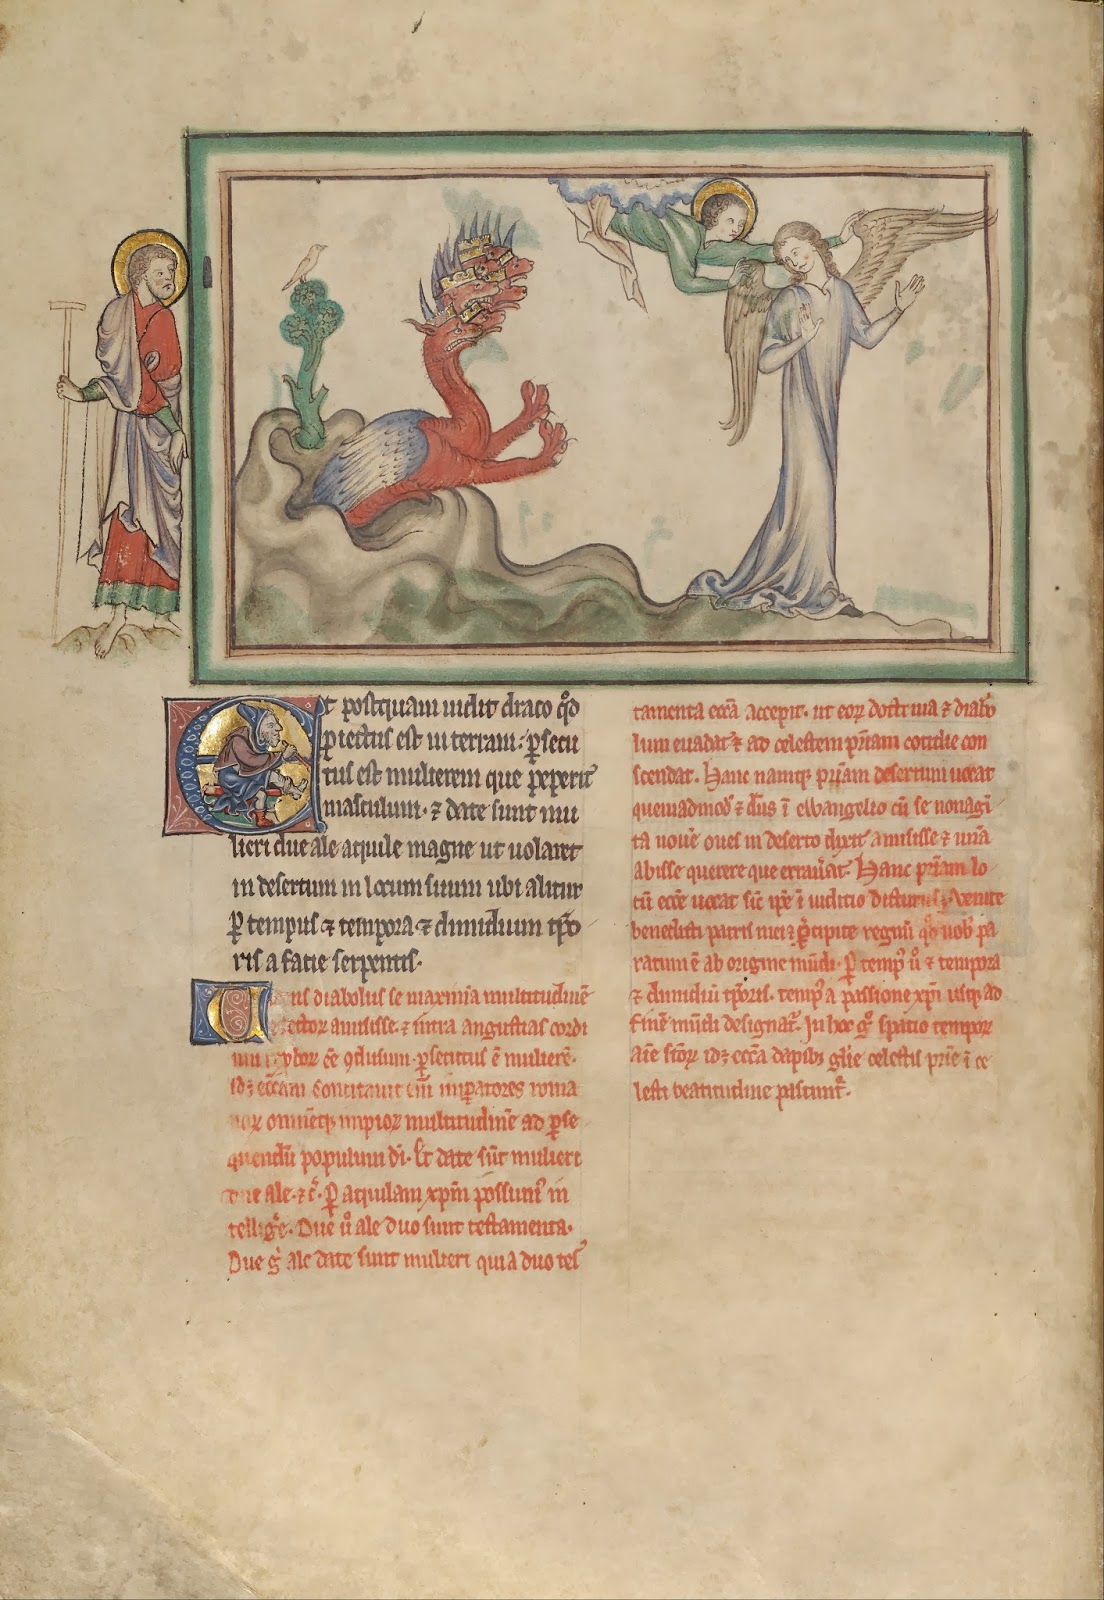 Et postquam uidit draco qd̄
p̄iectus est in terram: ꝑsecu
tus est mulierem que peperit
masculum. ⁊ date sunt mu
lieri due ale aquile magne ut uolaret
in desertum in locum suum ubi alitur
ꝑ tempus ⁊ tempora ⁊ dimidium tp̄o
ris a facie serpentis.
diabolus se maximā multitudinē
amisisse. ⁊ intra angustias cordi
um ēē ꝯclusum. ꝑsecutus ē mulierē.
ecc̄am. imꝑatores roma
omnēq; impioꝝ multitudinē ad ꝑse
quendū populum di. Et date sūt mulieri
due ale. ⁊c̄. Ꝑ aquilam xp̄m possum' in
tellig̃e. Due ů ale duo sunt testamenta.
Due g̊ ale date sunt mulieri quia duo tes
tamenta ecc̄a accepit. ut eoꝝ doctrina ⁊ diabo
lum euadat ⁊ ad celestem pr̄iam cotidie con
scendat. Hanc namq; pr̄iam desertum uocat
quemadmod̄ ⁊ dn̄s ī ewangelio cū se nonagī
ta nouē oues in deserto dixit amisisse ⁊ unā
abisse querere que errau̇at. Hanc pr̄iam lo
cū ecc̄e uocat sic̄ ip̄e ī iuditio dicturus ē. Venite
benedicti patris mei ⁊ ꝑcipite regnū qd̄ uob̄ pa
ratum ē ab origine mūdi. Ꝑ temp' ů ⁊ tempora
⁊ dimidiū tp̄oris. temp' a passione xp̄i usq; ad
finē mūdi designat᷑. In hoc g̊ spatio tempoꝝ
aīe scōꝝ idē ecc̄a dapib; gl̄ie celestis pr̄ie ī ce
lesti beatitudine pascunt᷑.